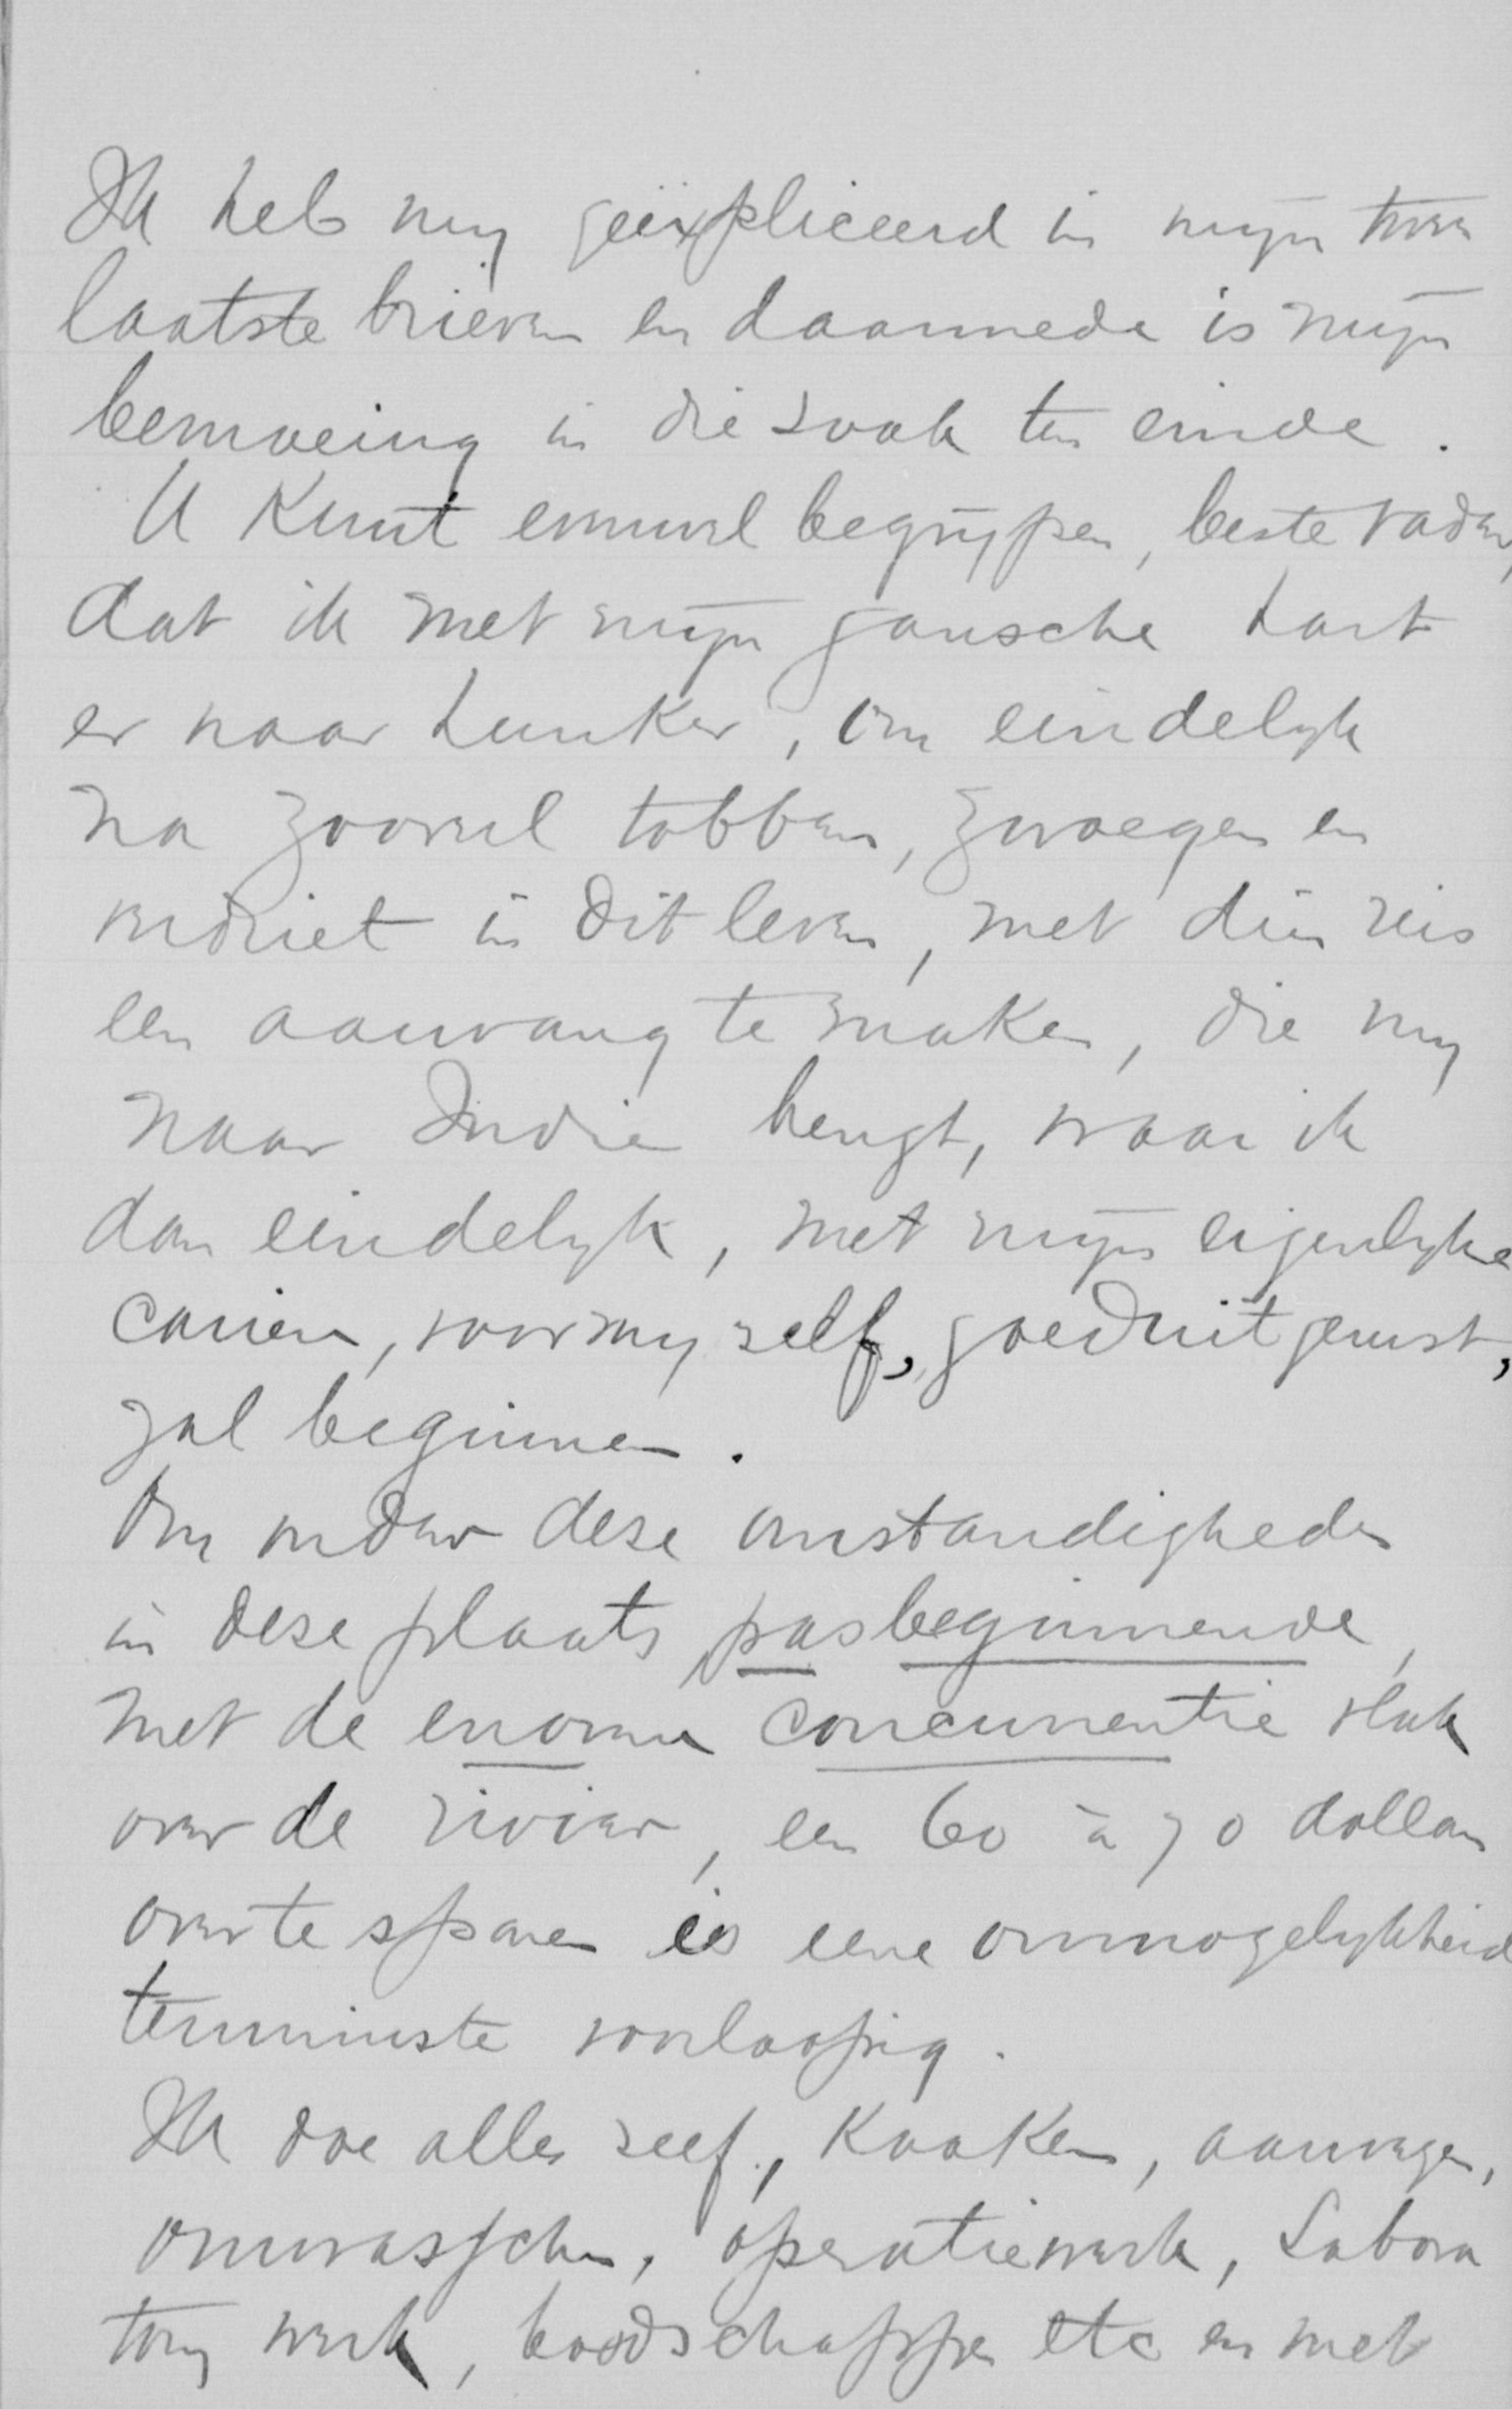 Ik heb my geëxpliceerd in mijn twee
laatste brieven en daarmede is mijn
bemoeiing in die zaak ten einde.
U kunt evenwel begrijpen, beste vader,
dat ik met mijn gansche hart
er naar hunker, om eindelyk
na zooveel tobben, zwoegen en
verdriet in dit leven, met die reis
een aanvang te maken, die my
naar Indie brengt, waar ik
dan eindelyk, met mijn eigenlyke
carriere, voor my self, goed uitgerust,
zal beginnen.
Om onder deze omstandigheden
in deze plaats pas beginnende,
met de enorme concurrentie vlak
over de rivier, een 60 à 70 dollars
over te sparen is eene onmogelykheid
tenminste voorloopig.
Ik doe alles self, koken, aanvegen,
omwasschen, operatiewerk, Labora
tory werk, boodschappen etc en met